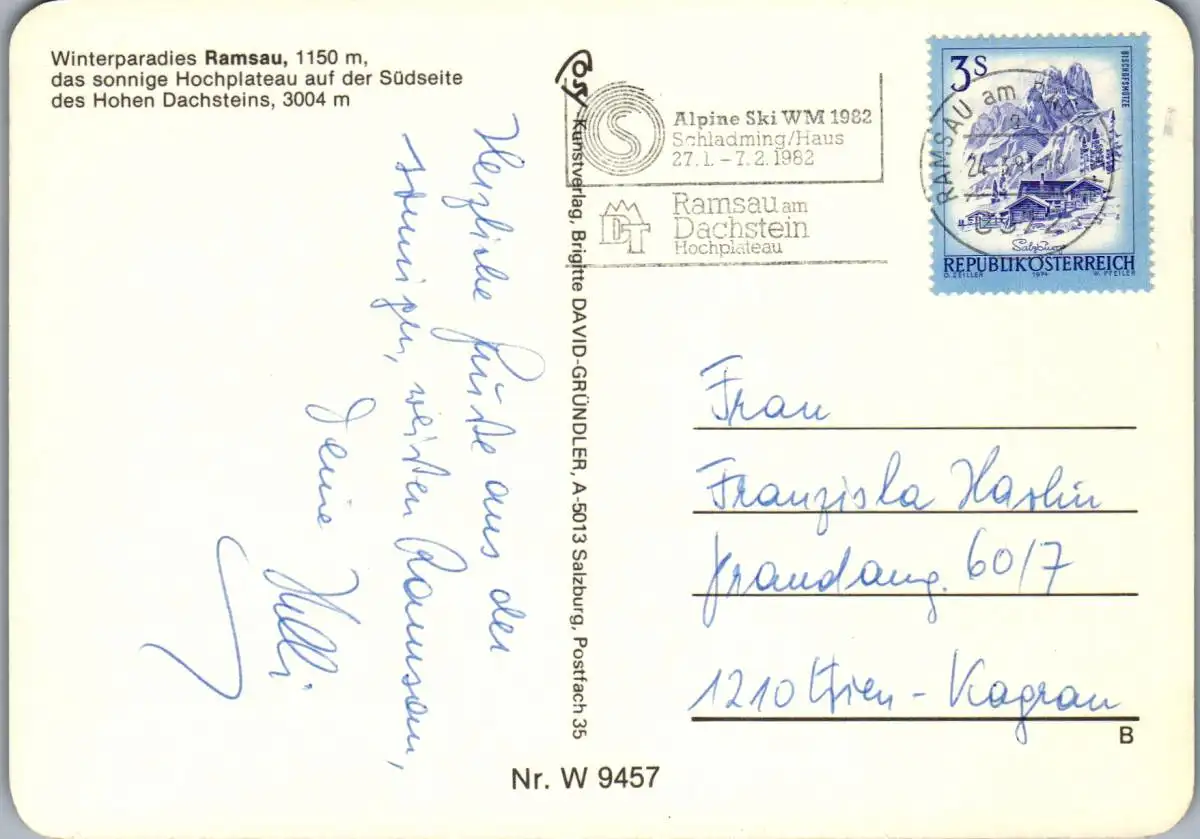 Winterparadies Ramsau, 1150 m,
das sonnige Hochplateau auf der Südseite
des Hohen Dachsteins, 3004 m
Herzliche Grüße aus der
sonnigen, weißen Ramsau,
Deine Helli
Kunstverlag, Brigitte DAVID-GRÜNDLER, A-5013 Salzburg, Postfach 35
Alpine Ski WM 1982
Schladming/Haus
27.1. – 7.2.1982
DT
Ramsau am
Dachstein
Hochplateau
RAMSAU am
3S
BISCHOFSMÜTZE
Salzburg
REPUBLIK ÖSTERREICH
O. ZEILLER 1974 W. PFEILER
Frau
Franziska
60/7
1210 Wien - Kagran
B
Nr. W 9457